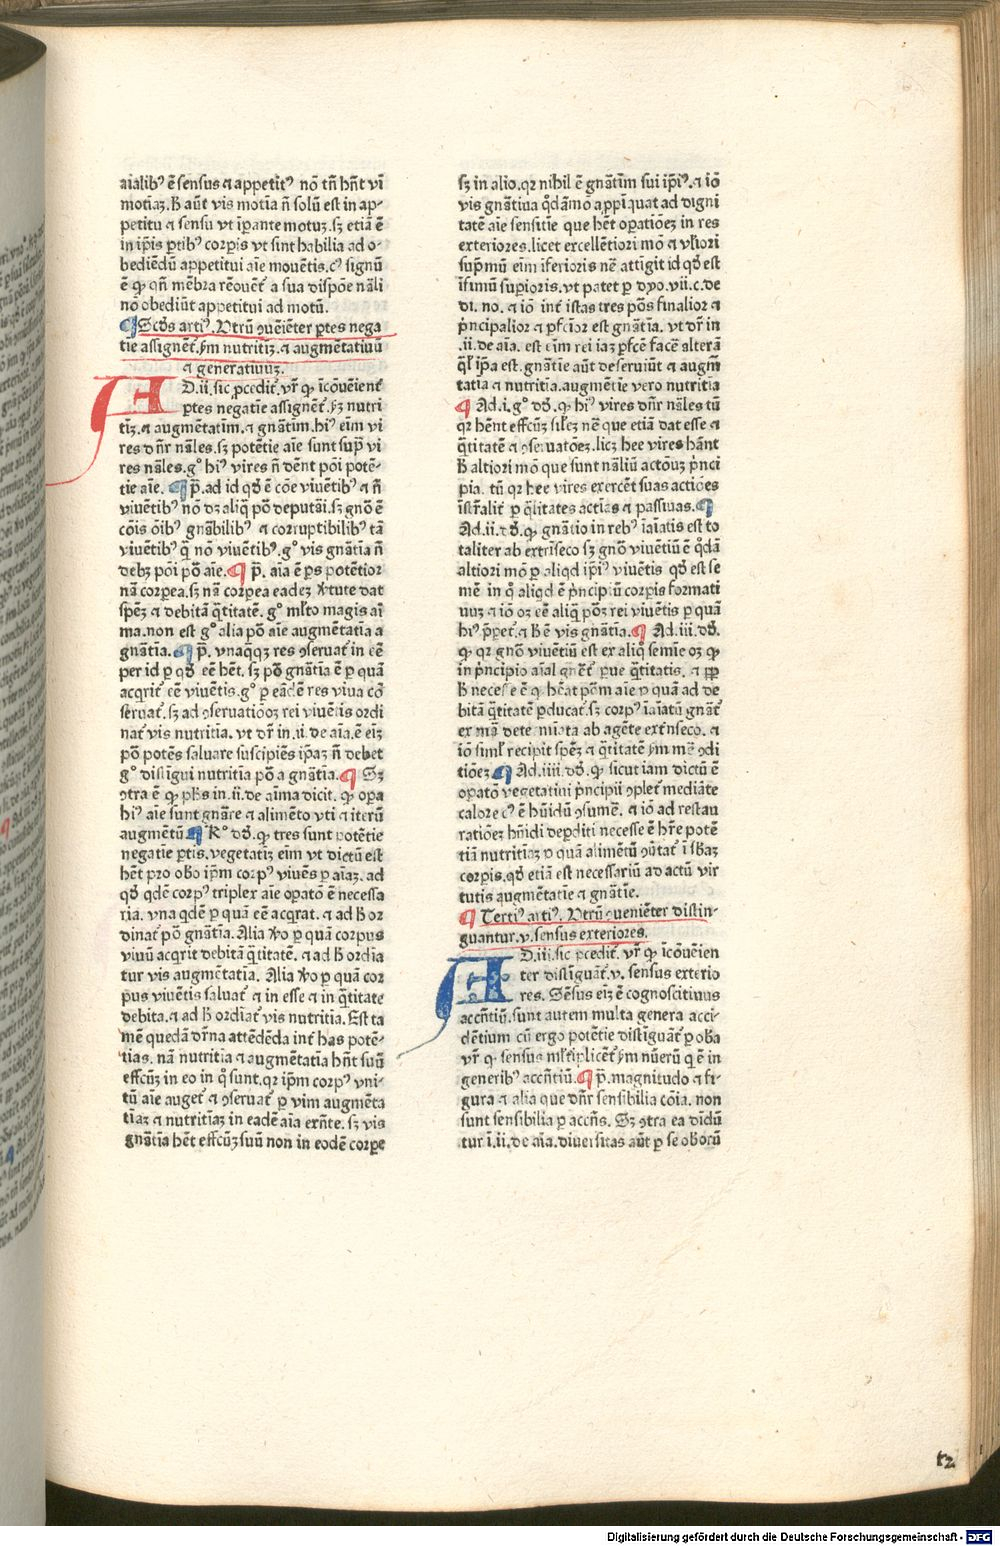 aialibꝰ ē sensus ⁊ appetitꝰ nō tn̄ hn̄t vī
motiaꝫ. B aūt vis motīa n̄ solū est in ap-
petitu ⁊ sensu vt īꝑante motuꝫ. sꝫ etiā ē
in ip̄is ꝑtibꝰ corꝑis vt sint habilia ad o-
bediēdū appetitui aīe mouētis. cꝰ signū
ē ꝙ qn̄ mēbra remouēt a sua dispōe nāli
nō obediūt appetitui ad motū.
¶ Scd̄s artiꝰ. Vtrū ꝯueniēter ꝑtes nega
tie assignēt ẜm nutritiꝫ. ⁊ augmētatiuū
⁊ generatiuuꝫ.
AD. ii. sic ꝓcedit. vr̄ ꝙ īcōuēient
ꝑtes negatīe assignēt. ẜꝫ nutri
tīꝫ. ⁊ augmētatim. ⁊ gnātim. hiꝰ eīm vi
res dn̄r nāles. sꝫ potētie aīe sunt sup̄ vi
res nāles. gº hiꝰ vires n̄ dēnt pōi potē-
tie aīe. ¶ p̄. ad id qd̄ ē cōe viuētibꝰ ⁊ n̄
viuētibꝰ nō dꝫ aliq̄ pō deputāi. sꝫ gnō ē
cōis oībꝰ gnābilibꝰ ⁊ corruptibilibꝰ tā
viuētibꝰ q̄ nō viuētibꝰ. gº vis gnātīa n̄
debꝫ pōi pō aīe. ¶ p̄. aīa ē ꝑs potētior
nā corꝑea. sꝫ nā corꝑea eadeꝫ ꝟtute dat
spēꝫ ⁊ debitā q̄titatē. gº ml̄to magis aī
ma. non est gº alia pō aīe augmētatīa a
gnātīa. ¶ p̄. vnaqꝫqꝫ res ꝯseruat̄ in eē
per id ꝑ qd̄ eē hēt. sꝫ pō gnātīa ē ꝑ quā
acq̄rit eē viuētis. gº ꝑ eādē res viua cō
seruat̄. sꝫ ad ꝯseruatiōꝫ rei viuētis ordi
nat̄ vis nutritīa. vt dr̄ in. ii. de aīa. ē eīꝫ
pō potēs saluare suscipiēs ip̄aꝫ n̄ debet
gº distīgui nutritīa pō a gnātīa. ¶ Sꝫ
ꝯtra ē ꝙ ph̄s in. ii. de aīma dicit. ꝙ oꝑa
hiꝰ aīe sunt gnāre ⁊ alimēto vti ⁊ iterū
augmētū ¶ Rº dd̄. ꝙ tres sunt potētie
negatīe ꝑtis. vegetatīꝫ eīm vt dictū est
hēt pro obo ip̄m corpꝰ viuēs ꝑ aīaꝫ. ad
qd̄ qdē corpꝰ triplex aīe oꝑatō ē necessa
ria. vna qdē ꝑ quā eē acq̄rat. ⁊ ad B or
dinat̄ pō gnātīa. Alia ꝟo ꝑ quā corpus
viuū acq̄rit debitā q̄titatē. ⁊ ad B ordīa
tur vis augmētatīa. Alia ꝟo ꝑ quā cor
pus viuētis saluat̄ ⁊ in esse ⁊ in q̄titate
debita. ⁊ ad B ordīat̄ vis nutritīa. Est ta
mē quedā dr̄na attēdēda int̄ has potē-
tias. nā nutritīa ⁊ augmētatīa hn̄t suū
effcūꝫ in eo in q̊ sunt. qꝛ ip̄m corpꝰ vni-
tū aīe auget̄ ⁊ ꝯseruat̄ ꝑ vim augmēta
tīaꝫ ⁊ nutritīaꝫ in eadē aīa exn̄te. sꝫ vis
gnātīa hēt effcūꝫ suū non in eodē corꝑe
sꝫ in alio. qꝛ nihil ē gnātīm sui ip̄iꝰ. ⁊ iō
vis gnātiua qd̄āmō appīquat ad digni
tatē aīe sensitīe que hēt oꝑatiōeꝫ in res
exteriores. licet excellētiori mō ⁊ vl̄iori
sup̄mū eīm īferioris nē attīgit id qd̄ est
īfimū suꝑioris. vt patet ꝑ dyo. vii. c. de
di. no. ⁊ iō int̄ istas tres pōs finalior ⁊
p̄ncipalior ⁊ ꝑfcīor est gnātīa. vt dr̄ in
.ii. de aīa. est eīm rei iaꝫ ꝑfcē facē alterā
q̄l̄ ip̄a est. gnātīe aūt deseruiūt ⁊ augm̄
tatīa ⁊ nutritīa. augmētīe vero nutritīa
¶ Ad. i. gº dd̄. ꝙ hiꝰ vires dn̄r nāles tū
qꝛ hēnt effcūꝫ sil̄eꝫ nē que etiā dat esse ⁊
q̄titatē ⁊ ꝯseruatōeꝫ. licꝫ hee vires hānt
B altiori mō que sunt nāliū actōuꝫ p̄nci
pia. tū qꝛ hee vires exercēt suas actiōes
īstr̄alit̄ ꝑ q̄litates actīas ⁊ passiuas. ¶
Ad. ii. dd̄. ꝙ gnātio in rebꝰ īaīatis est to
taliter ab extrīseco sꝫ gnō viuētiū ē qd̄ā
altiori mō ꝑ aliqd ip̄iꝰ viuētis qd̄ est se
mē in q̊ aliqd ē p̄ncipiū corꝑis formati
uuꝫ ⁊ iō oꝫ eē aliq̄ pōꝫ rei viuētis ꝑ quā
hiꝰ p̄ꝑet̄. ⁊ B ē vis gnātīa. ¶ Ad. iii. dd̄.
ꝙ qꝛ gnō viuētiū est ex aliq̊ semīe oꝫ ꝙ
in p̄ncipio aīal gnēt̄ ꝑue q̄titatis. ⁊ ꝓp̄
B necesse ē ꝙ hēat pōm aīe ꝑ quā ad de
bitā q̄titatē ꝑducat̄. sꝫ corpꝰ īaīatū gnāt̄
ex mā determīata ab agēte extrīnseco. ⁊
iō siml̄ recipit spēꝫ ⁊ q̄titatē ẜm mē ꝯdi
tiōeꝫ ¶ Ad. iiii. dd̄. ꝙ sicut iam dictū ē
oꝑatō vegetatīui p̄ncipii ꝯplet̄ mediāte
calore cꝰ ē hūidū ꝯsumē. ⁊ iō ad restau
ratiōeꝫ hūidi deꝑditi necesse ē hr̄e potē
tiā nutritīaꝫ ꝑ quā alimētū ꝯūtat̄ ī sbāꝫ
corꝑis. qd̄ etiā est necessariū ad actū vir
tutis augmētatīe ⁊ gnātīe.
¶ Tertiꝰ artiꝰ. Vtrū ꝯueniēter distin-
guantur. v. sensus exteriores.
AD. iii. sic ꝓcedit̄. vr̄ ꝙ īcōueīen
ter distīguāt̄. v. sensus exterio
res. Sēsus eīꝫ ē cognoscitiuus
accn̄tiū. sunt autem multa genera acci-
dētium cū ergo potētie distīguāt̄ ꝑ oba
vr̄ ꝙ sensus ml̄tiplicēt̄ ẜm nūerū q̄ ē in
generibꝰ accn̄tiū. ¶ p̄. magnitudo ⁊ fi-
gura ⁊ alia que dn̄r sensibilia cōia. non
sunt sensibilia ꝑ accn̄s. Sꝫ ꝯtra ea dīdū
tur ī. ii. de aīa. diuersitas aūt ꝑ se oboꝝ
t2
Digitalisierung gefördert durch die Deutsche Forschungsgemeinschaft - DFG